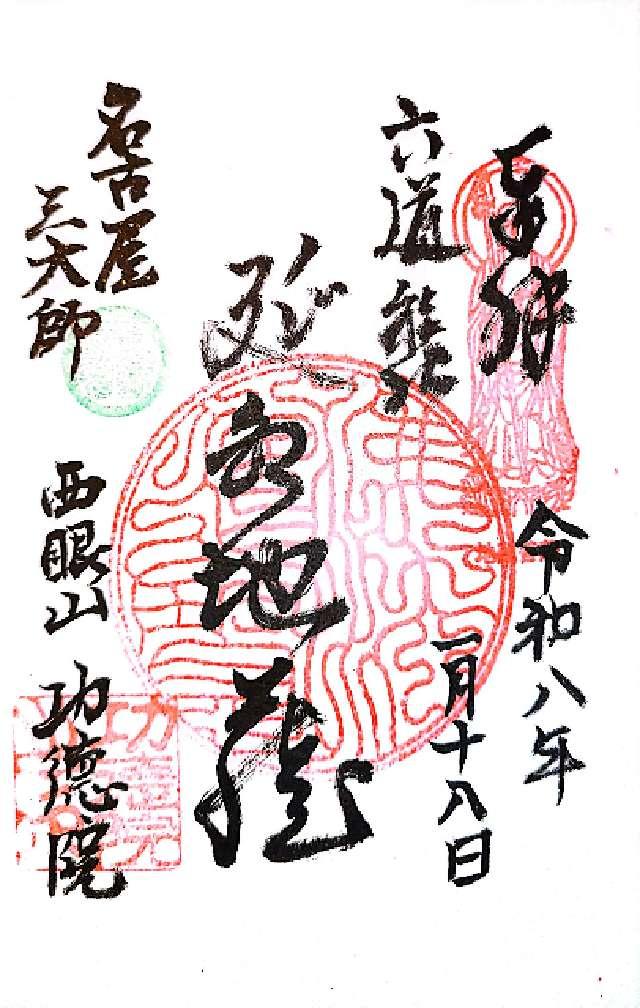 奉拝
令和八年
六道能化
一月十八日
水地蔵
名古屋
三大師
西眼山 功徳院